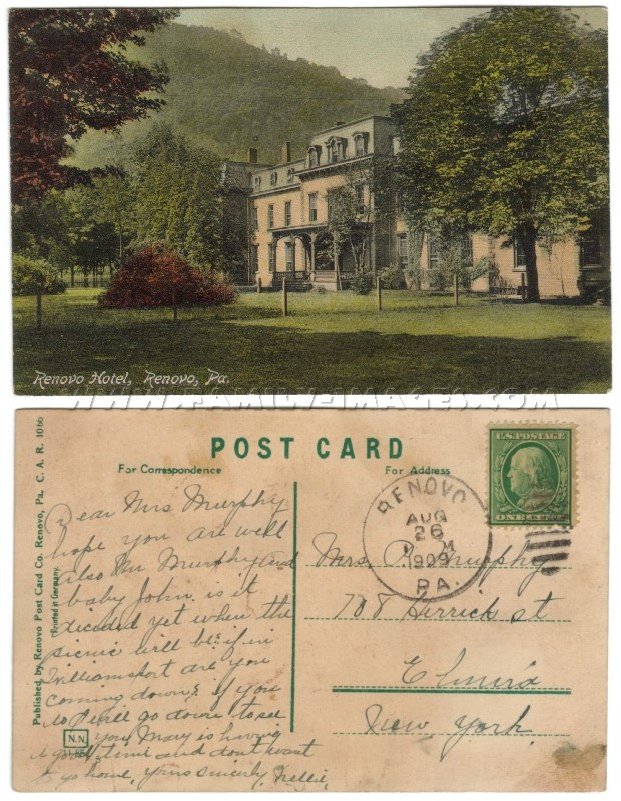 Renovo Hotel, Renovo, Pa.
WWW.FAMILY-IMAGES.COM
POST CARD
For Correspondence
For Address
Published by Renovo Post Card Co. Renovo, Pa. C. A. R. 1066
Printed in Germany.
N.N.
U.S. POSTAGE
ONE CENT
RENOVO
AUG
26
M
1909
PA.
Dear Mrs Murphy
hope you are well
also Mr Murphy and
baby John. is it
decided yet when the
picnic will be. if in
Williamsport are you
coming down? if you
do I will go down to see
you, Mary is having
a good time and dont want
to go home, yours sincerely, Nellie,
Mrs. P. Murphy
708 Herrick st
Elmira
New York